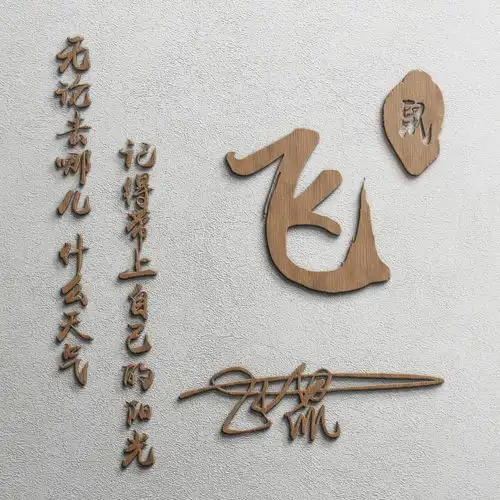 无论去哪儿 什么天气
记得带上自己的阳光
飞